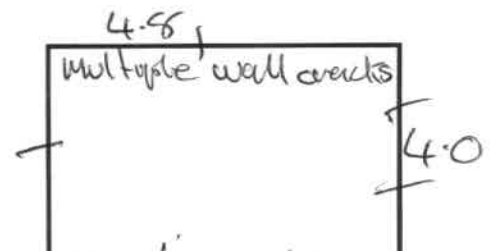 4.8
Multiple wall cracks
4.0